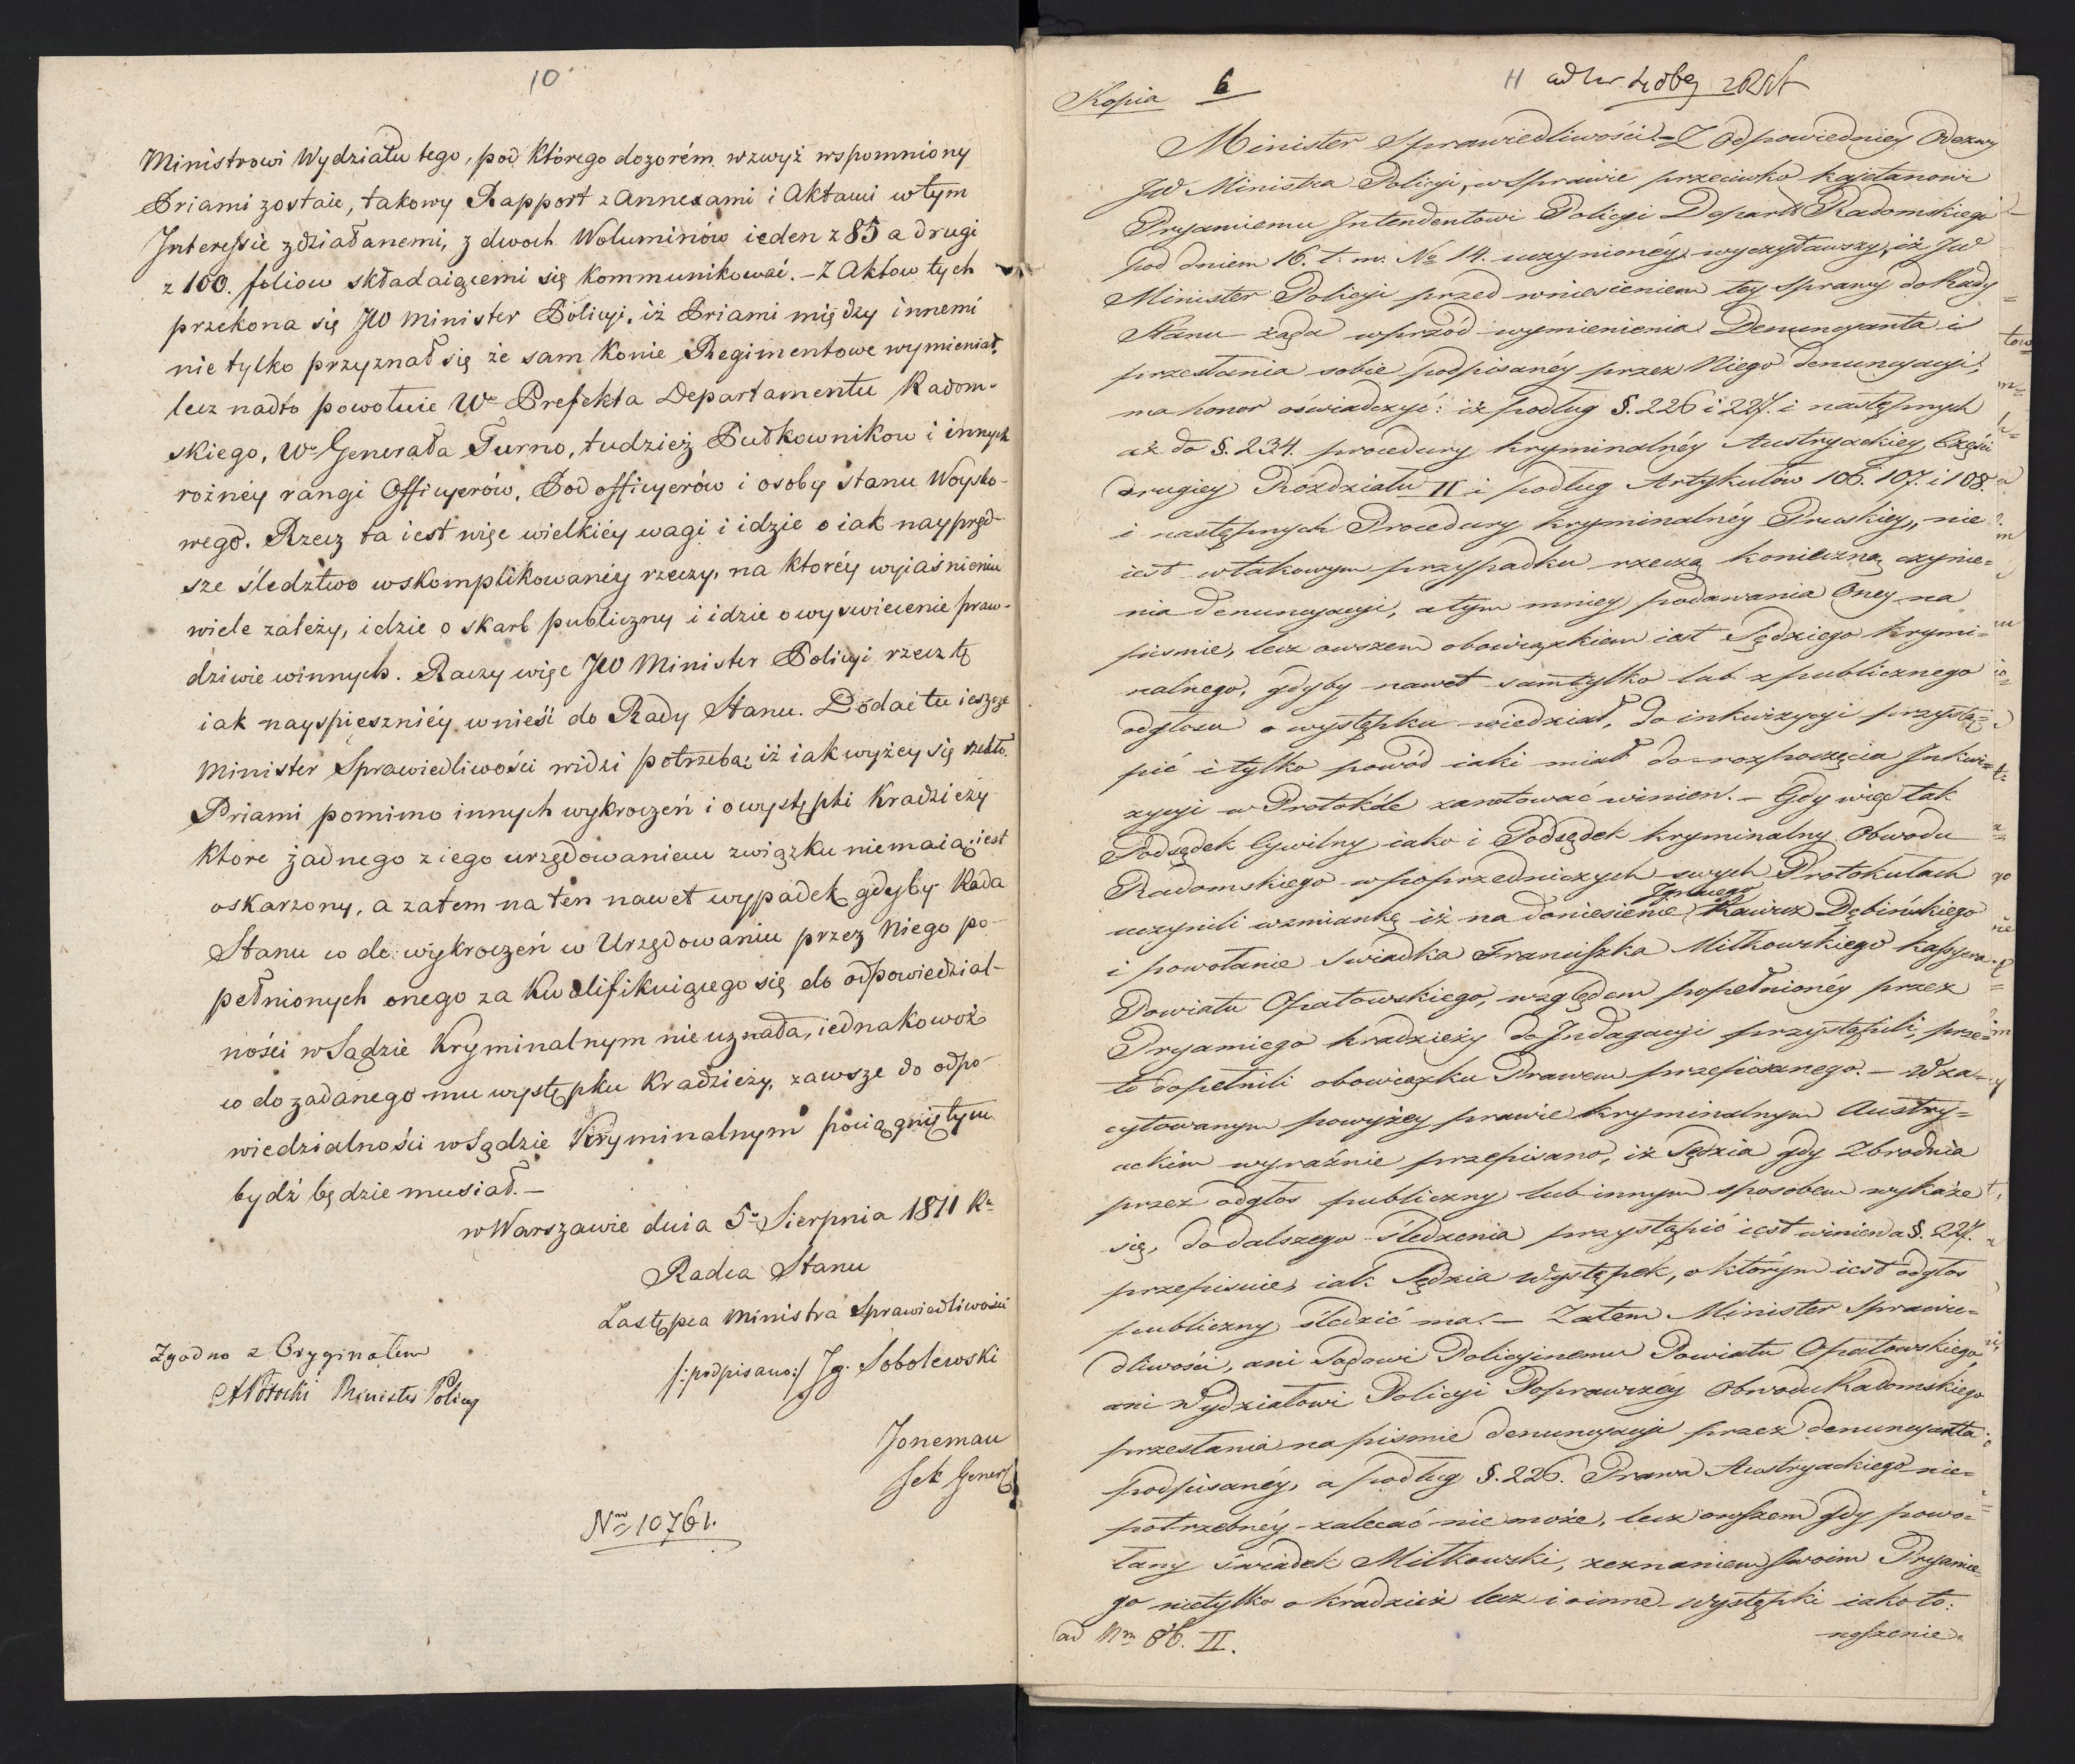 10
Ministrowi Wydziału tego, pod którego dozorém wzwyż wspomniony
Priami zostaie, takowy Rapport z Annexami i Aktami w tym
Interessie zdziałanemi, z dwoch Woluminów ieden z 85 a drugi
z 100. foliow składaiącemi się kommunikować. – Z Aktow tych
przekona się JW Minister Policyi, iż Priami między innemi
nie tylko przyznał się że sam Konie Regimentowe wymieniał,
lecz nadto powołuie Wo Prefekta Departamentu Radom-
skiego, Wo Generała Turno, tudzież Pułkownikow i innych
rożnéy rangi Officyerów, Podofficyerów i osoby stanu Woysko-
wego. Rzecz ta iest więc wielkiéy wagi i idzie o iak naypręd-
sze śledztwo wskomplikowanéy rzeczy, na któréy wyiaśnieniu
wiele zależy, idzie o skarb publiczny i idzie o wyswiecenie praw-
dziwie winnych. Raczy więc JW Minister Policyi rzecz tę
iak nayspieszniéy wnieśi do Rady Stanu. Dodać tu ieszcze
Minister Sprawiedliwości widzi potrzebę iż iak wyżey się rzekło.
Priami pomimo innych wykroczeń i o występki Kradzieży
które żadnego z iego urzędowaniem związku nie maią, iest
oskarzony, a zatem na ten nawet wypadek gdyby Rada
Stanu co do wykroczeń w Urzędowaniu przez Niego po-
pełnionych onego za Kwalifikuiącego się do odpowiedzial-
ności w Sądzie Kryminalnym nie uznała, iednakowoż
co do zadanego mu występku Kradzieży, zawsze do odpo-
wiedzialności w Sądzie Kryminalnym pociągniętym
bydź będzie musiał. –
w Warszawie dnia 5o Sierpnia 1811 Ru
Radca Stanu
Zastępca Ministra Sprawiedliwości
/:podpisano:/ Ig. Sobolewski
Zgodno z Oryginałem
A Potocki Minister Policyi
Joneman
Sek Generl
Nro 10761.
Kopia 6
11
Minister Sprawiedliwości = Z Odpowiedniey Odezwy
JW Ministra Policyi, w Sprawie przeciwko Kajetanowi
Pryamiemu Intendentowi Policyi Depart Radomskiego
pod dniem 16. t. m. No 14. uczynionéy, wyczytawszy, iż JW
Minister Policyi przed wniesieniem tey sprawy do Rady
Stanu żąda wprzód wymienienia Denuncyanta i
przesłania sobie podpisanéy przez Niego denuncyacyi,
ma honor oświadczyć: iż podług §. 226 i 227. i następnych
aż do §. 234. procedury kryminalnéy Austryackiey Części
drugiey Rozdziału II i podług Artykułów 106. 107. i 108.
i następnych Procedury kryminalnéy Pruskiey, nie
iest w takowym przypadku rzeczą konieczną czynie=
nia denuncyacyi, a tym mniey podawania Oney na
pismie, lecz owszem obowiązkiem iest Sędziego krymi=
nalnego, gdyby nawet sam tylko lub z publicznego
odgłosu o występku wiedział, do inkwizycyi przystą=
pić i tylko powód iaki miał do rozpoczęcia Inkwi=
zycyi w Protokóle zanotować winien. – Gdy więc tak
Podsędek Cywilny iako i Podsędek kryminalny Obwodu
Radomskiego w poprzedniczych swych Protokułach
uczynili wzmiankę iż na doniesienie Ignacego Dębińskiego
i powołanie Swiadka Franciszka Miłkowskiego Kassyera
Powiatu Opatowskiego, względem popełnionéy przez
Pryamiego kradzieży do Indagacyi przystąpili, prze=
to dopełnili obowiązku Prawem przepisanego. – W za=
cytowanym powyżey prawie kryminalnym Austry=
ackim wyraźnie przepisano, iż Sędzia gdy Zbrodnia
przez odgłos publiczny lub innym sposobem wykaże
się, do dalszego śledzenia przystąpić iest winien a §. 227.
przepisuie, iak Sędzia Występek, o którym iest odgłos
publiczny śledzić ma. – Zatem Minister Sprawie=
dliwości, ani Sądowi Policyinemu Powiatu Opatowskiego,
ani Wydziałowi Policyi Poprawczéy Obwodu Radomskiego
przesłania na pismie denuncyacyi przez denuncyanta
podpisanéy, a podług §. 226. Prawa Austryackiego nie=
potrzebnéy zalecać nie może, lecz owszem gdy powo=
łany świadek Miłkowski, zeznaniem swoim Pryamie=
go nietylko o kradzież lecz i o inne występki iako to:
ad Nm 86. II.
noszenie